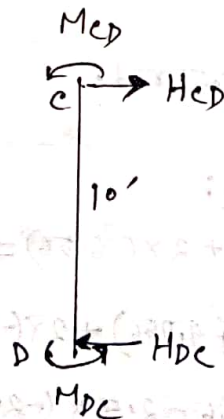 MCD
C HCD
10'
D HDC
MDC